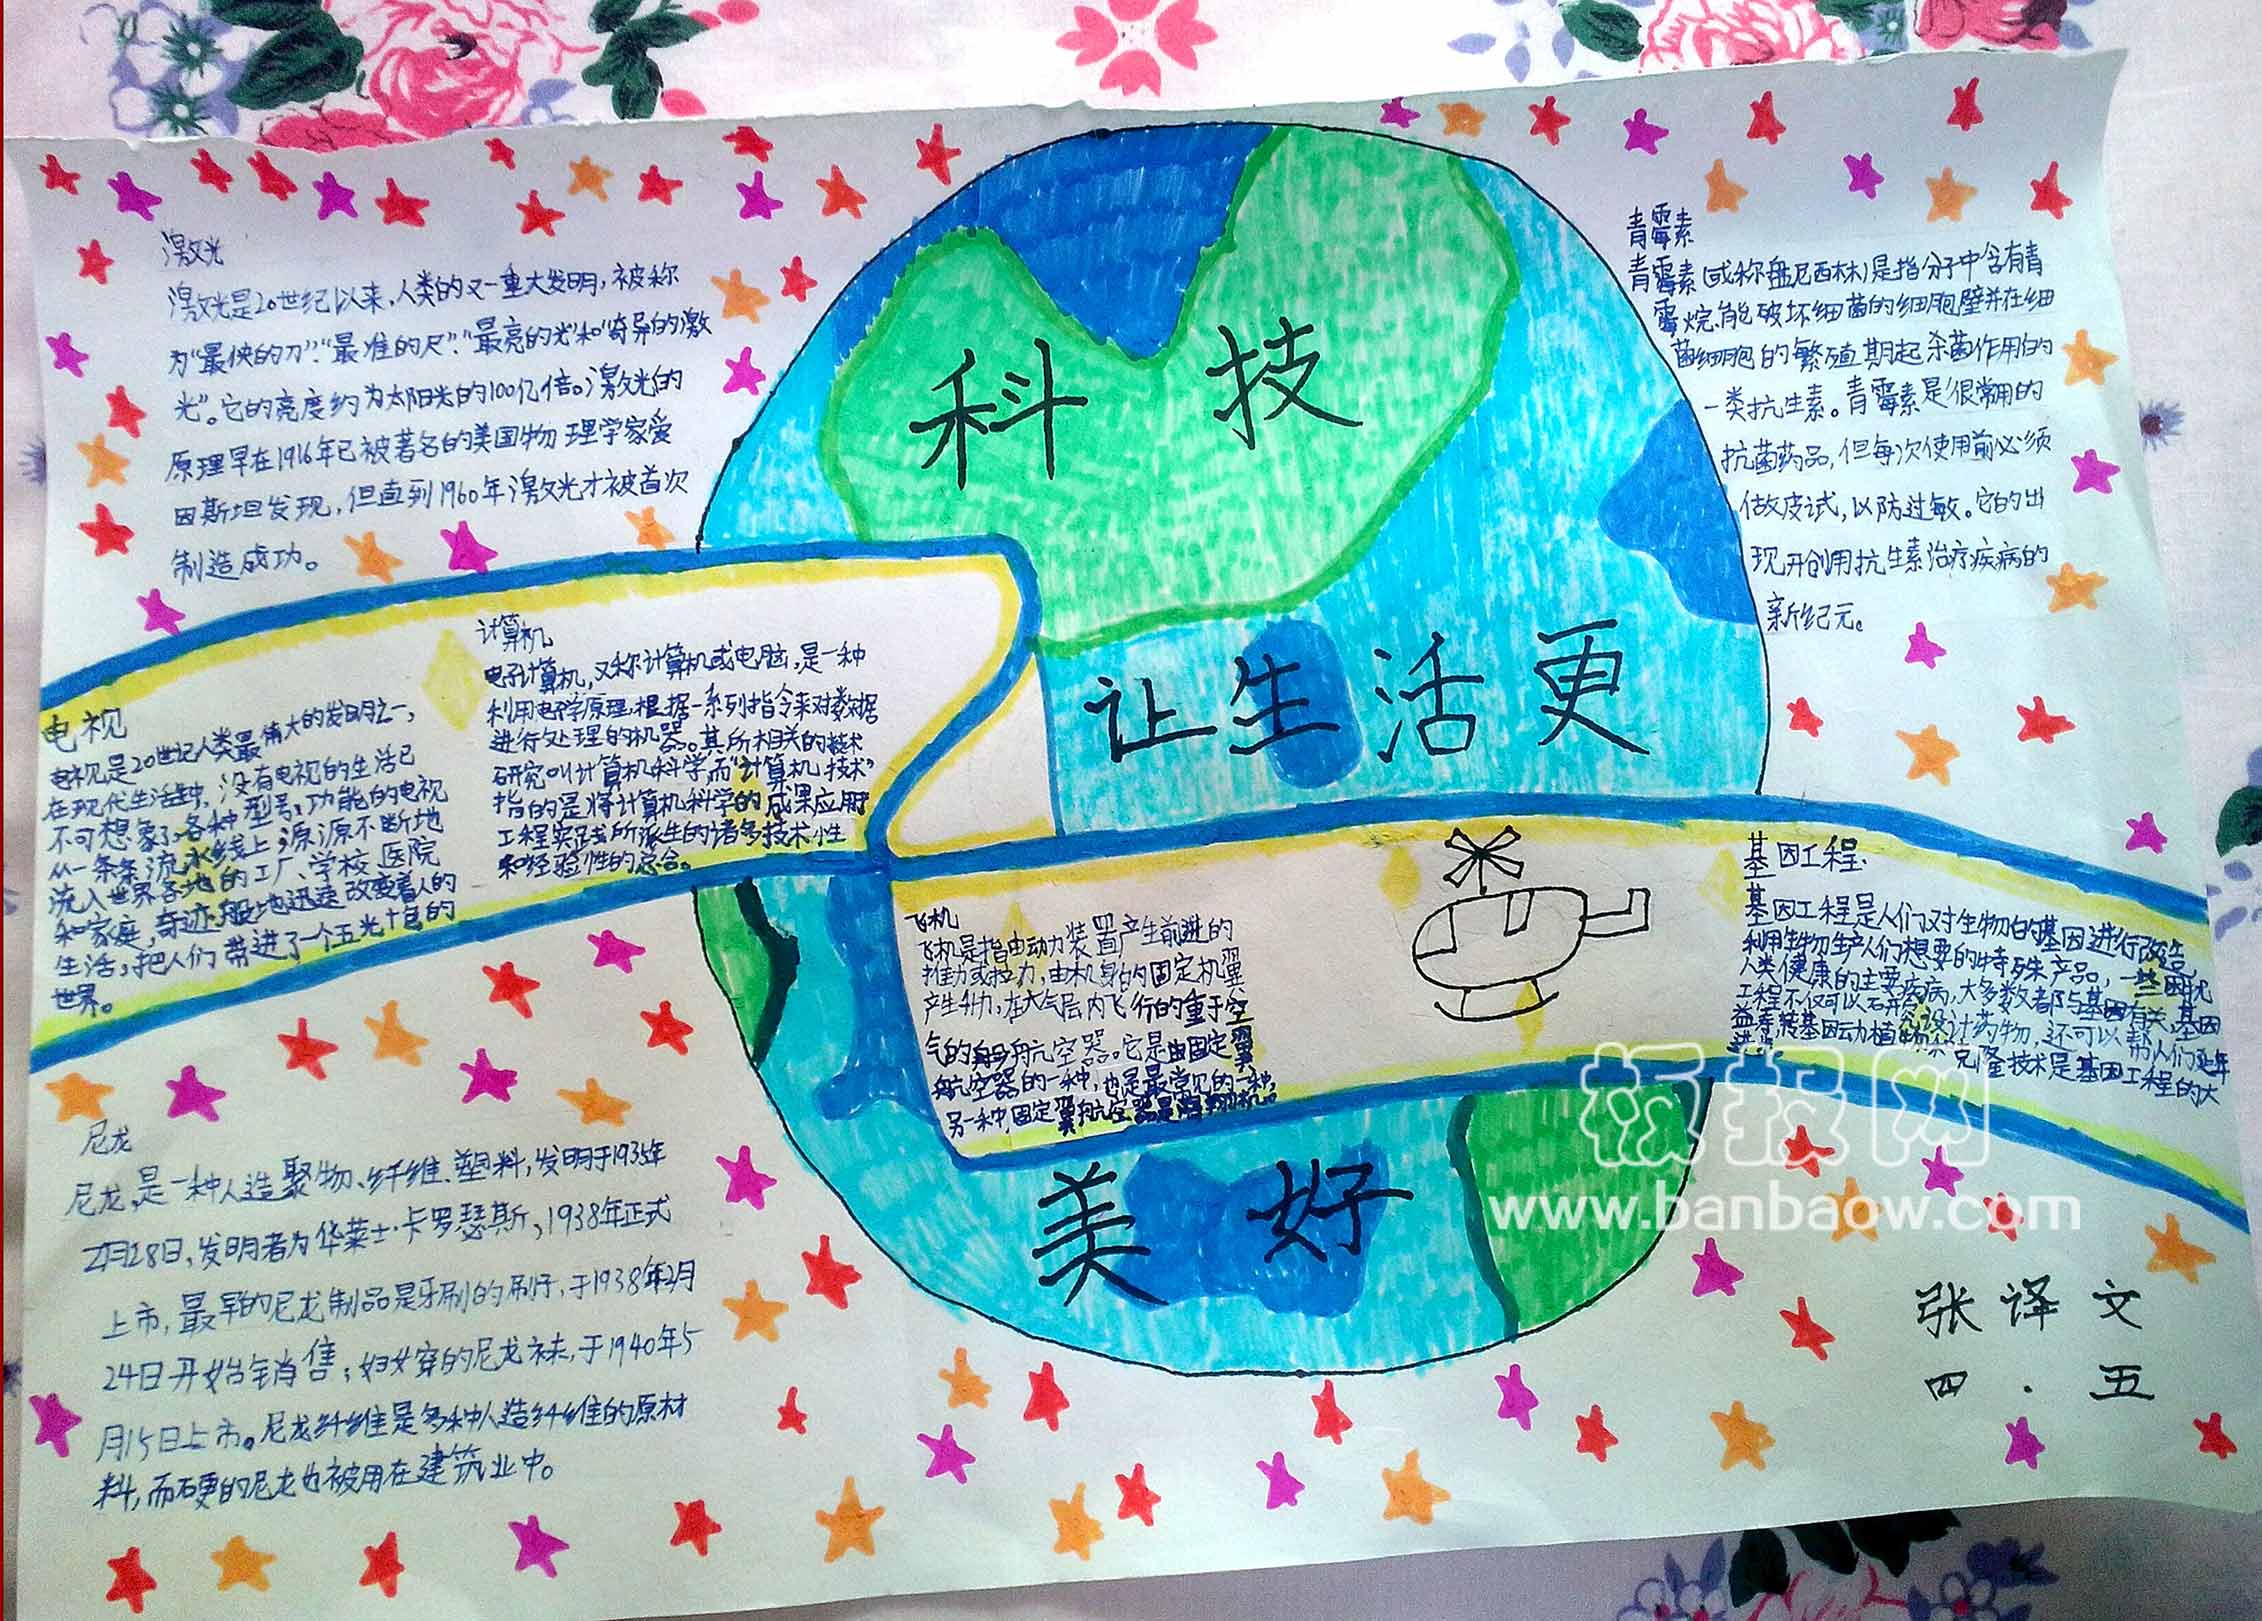 科技
让生活更
美好
激光
激光是20世纪以来,人类的又一重大发明,被称
为“最快的刀”、“最准的尺”、“最亮的光”和“奇异的激
光”。它的亮度约为太阳光的100亿倍。激光的
原理早在1916年已被著名的美国物理学家爱
因斯坦发现,但直到1960年激光才被首次
制造成功。
青霉素
青霉素(或称盘尼西林)是指分子中含有青
霉烷、能破坏细菌的细胞壁并在细
菌细胞的繁殖期起杀菌作用的
一类抗生素。青霉素是很常用的
抗菌药品,但每次使用前必须
做皮试,以防过敏。它的出
现开创用抗生素治疗疾病的
新纪元。
电视
电视是20世纪人类最伟大的发明之一,
在现代生活中,没有电视的生活已
不可想象了。各种型号、功能的电视
从一条条流水线上,源源不断地
流入世界各地的工厂、学校、医院
和家庭,奇迹般地迅速改变着人的
生活,把人们带进了一个五光十色的
世界。
计算机
电子计算机,又称计算机或电脑,是一种
利用电子学原理,根据一系列指令来对数据
进行处理的机器。其所相关的技术
研究叫计算机科学,而“计算机技术”
指的是将计算机科学的成果应用于
工程实践所派生的诸多技术性
和经验性的总合。
飞机
飞机是指由动力装置产生前进的
推力或拉力,由机身的固定机翼
产生升力,在大气层内飞行的重于空
气的航空器。它是固定翼
航空器的一种,也是最常见的一种,
另一种固定翼航空器是滑翔机。
基因工程:
基因工程是人们对生物的基因进行改造,
利用生物生产人们想要的特殊产品,一些困扰
人类健康的主要疾病,大多数都与基因有关,基因
工程不仅可以研究、设计药物,还可以帮人们延年
益寿,转基因动植物
克隆技术是基因工程的大
尼龙
尼龙,是一种人造聚物、纤维、塑料,发明于1935年
2月28日,发明者为华莱士·卡罗瑟斯,1938年正式
上市,最早的尼龙制品是牙刷的刷子,于1938年2月
24日开始销售;妇女穿的尼龙袜,于1940年5
月15日上市。尼龙纤维是多种人造纤维的原材
料,而硬的尼龙也被用在建筑业中。
张译文
四.五
板报网
www.banbaow.com